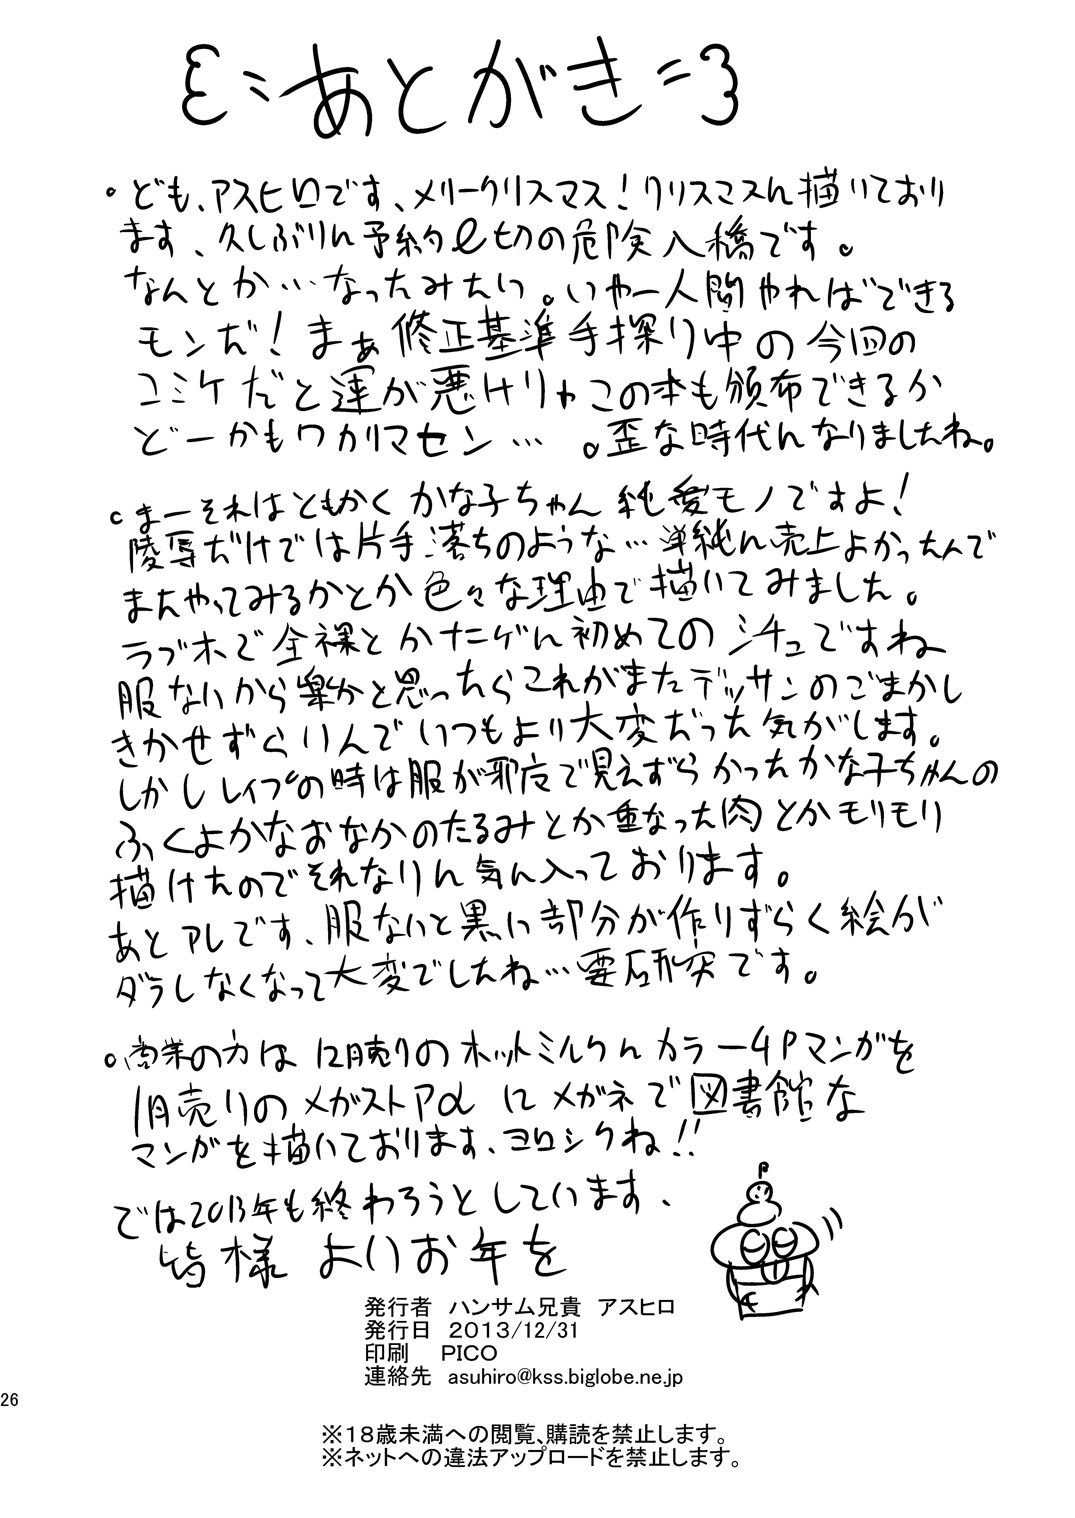 あとがき
。ども、アスヒロです、メリークリスマス!クリスマスに描いており
ます、久しぶりに予約〆切の危険入橋です。
なんとか…なったみたい。いやー人間やればできる
モンだ!まぁ修正基準手探り中の今回の
コミケだと運が悪けりゃこの本も頒布できるか
どーかもワカリマセン…。歪な時代になりましたね。
。まーそれはともかくかな子ちゃん純愛モノですよ!
陵辱だけでは片手落ちのような…単純に売上よかったんで
またやってみるかとか色々な理由で描いてみました。
ラブホで全裸とかナニゲに初めてのシチュですね
服ないから楽かと思ったらこれがまたデッサンのごまかし
きかせずらいんでいつもより大変だった気がします。
しかしレイプの時は服が邪广で見えずらかったかな子ちゃんの
ふくよかなおなかのたるみとか重なった肉とかモリモリ
描けたのでそれなりに気に入っております。
あとアレです、服ないと黒い部分が作りずらく絵が
ダラしなくなって大変でしたね…要研究です。
。商業の方は12月売りのホットミルクにカラー4Pマンガを
1月売りのメガストアαにメガネで図書館な
マンガを描いております、ヨロシクね!!
では2013年も終わろうとしています、
皆様よいお年を
発行者 ハンサム兄貴 アスヒロ
発行日 2013/12/31
印刷 PICO
連絡先 asuhiro@kss.biglobe.ne.jp
26
※18歳未満への閲覧、購読を禁止します。
※ネットへの違法アップロードを禁止します。